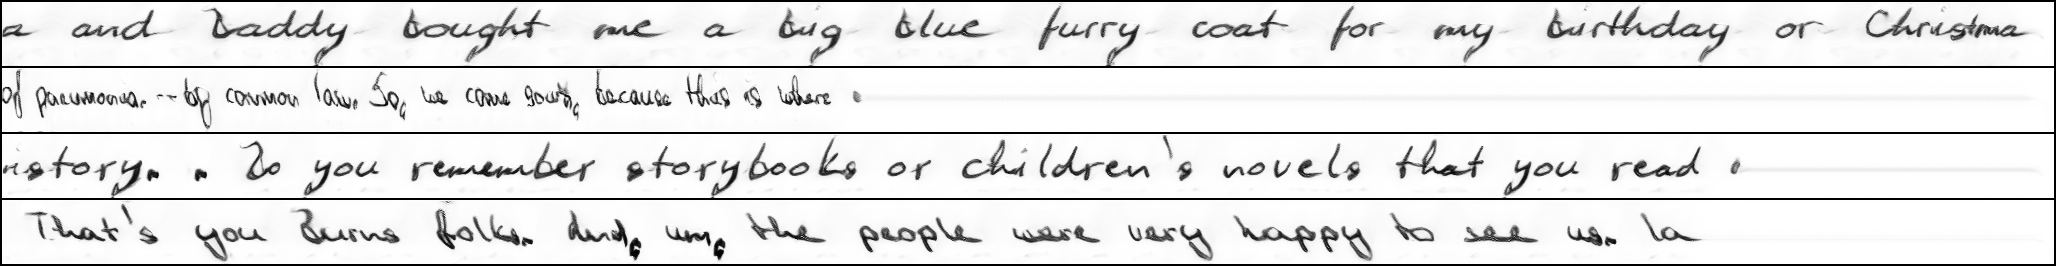 a and Daddy bought me a big blue furry coat for my birthday or Christma
of pneumonia. -- by common law. So, we came south, because this is where
istory. . Do you remember storybooks or children's novels that you read
That's you Burns folks. And, um, the people were very happy to see us. la